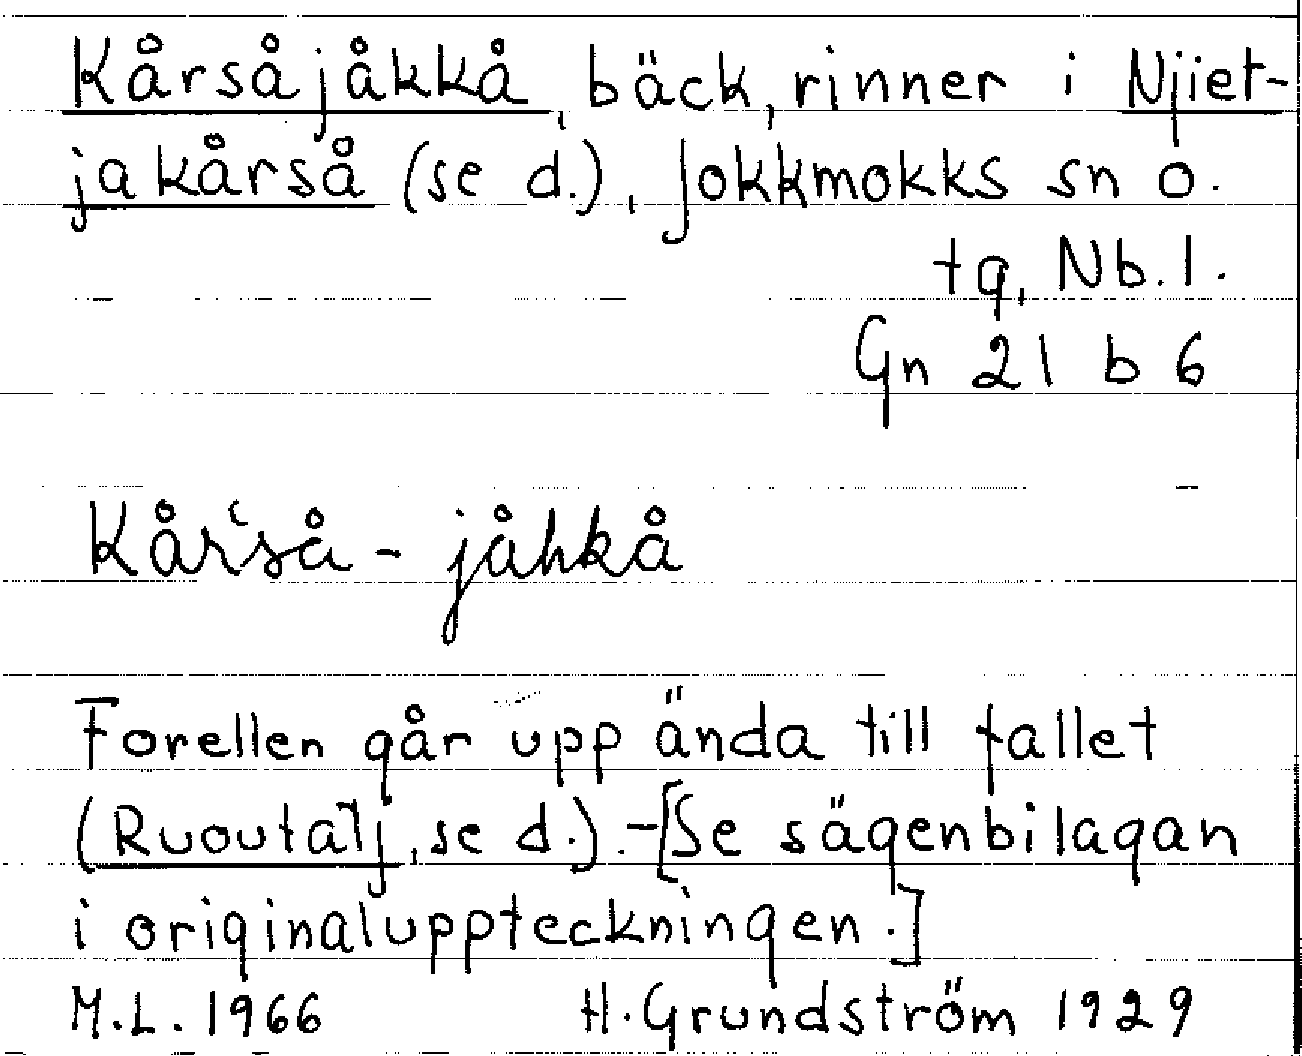 Kårsåjåkkå, bäck, rinner i Njiet-
jakårså (se d.), Jokkmokks sn o.
tg, Nb. l.
Gn 21 b 6
Kårʻså - jåhkå
Forellen går upp ända till fallet
(Ruoutalj, se d.). -[Se sägenbilagan
i originaluppteckningen.]
M.L. 1966 H. Grundström 1929